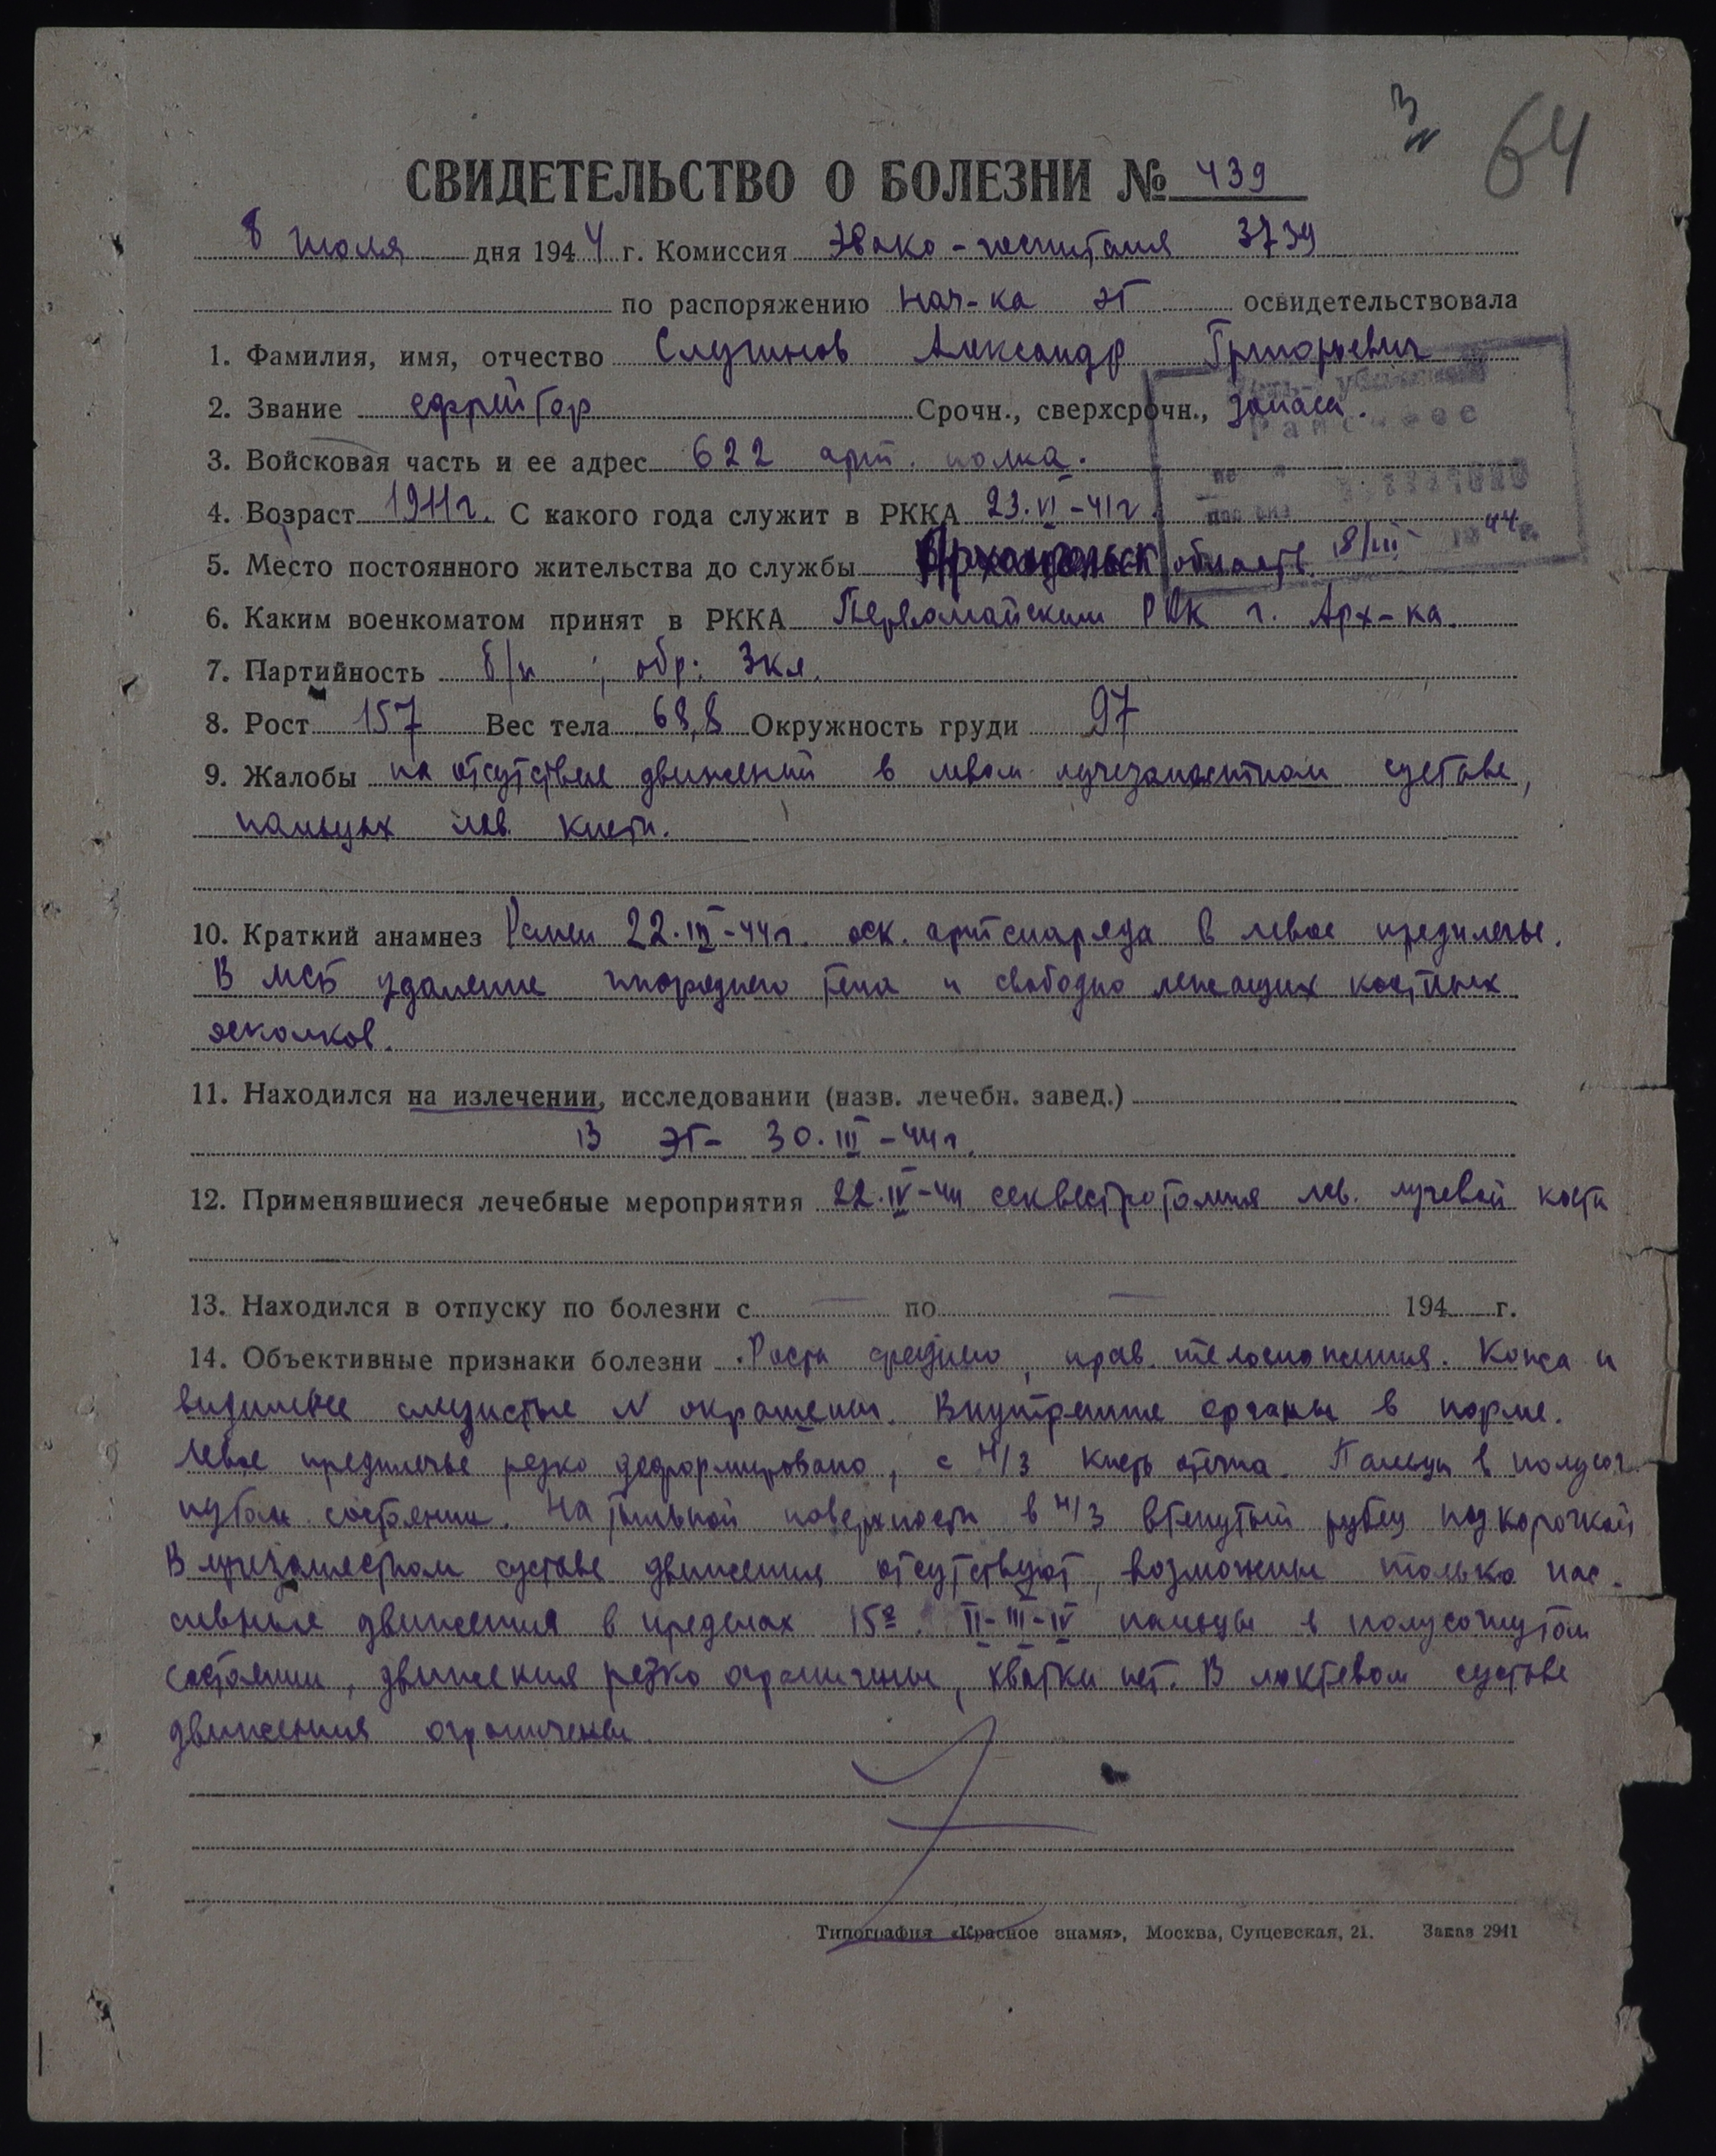 64
СВИДЕТЕЛЬСТВО О БОЛЕЗНИ № 439
8 июля дня 1944 г. Комиссия Эвако-госпиталя 3739
по распоряжению нач-ка ЭГ освидетельствовала
1. Фамилия, имя, отчество Случинов Александр Григорьевич
2. Звание ефрейтор Срочн., сверхсрочн., запаса.
3. Войсковая часть и ее адрес 622 арт. полка.
4. Возраст 1911г. С какого года служит в РККА 23.VI-41г
5. Место постоянного жительства до службы Архангельск область 18/III 44
6. Каким военкоматом принят в РККА Первомайским РВК г. Арх-ка.
7. Партийность б/п ; обр: 3кл.
8. Рост 157 Вес тела 68,8 Окружность груди 97
9. Жалобы на отсутствие движений в левом лучезапястном суставе,
пальцах лев. кисти.
10. Краткий анамнез Ранен 22.III-44г. оск. артснаряда в левое предплечье.
В МСБ удаление инородного тела и свободно лежащих костных
осколков.
11. Находился на излечении, исследовании (назв. лечебн. завед.)
В ЭГ- 30.III-44г.
12. Применявшиеся лечебные мероприятия 22.IV-44 секвестротомия лев. лучевой кости
13. Находился в отпуску по болезни с — по — 194 г.
14. Объективные признаки болезни Роста среднего, прав. телосложения. Кожа и
видимые слизистые N окрашены. Внутренние органы в норме.
Левое предплечье резко деформировано, с н/3 кисть отечна. Пальцы в полусог-
нутом состоянии. На тыльной поверхности в н/3 втянутый рубец под корочкой
В лучезапястном суставе движения отсутствуют, возможны только пас-
сивные движения в пределах 15°. II-III-IV пальцы в полусогнутом
состоянии, движения резко ограничены, хватки нет. В локтевом суставе
движения ограничены
Типография «Красное знамя», Москва, Сущевская, 21. Заказ 2941